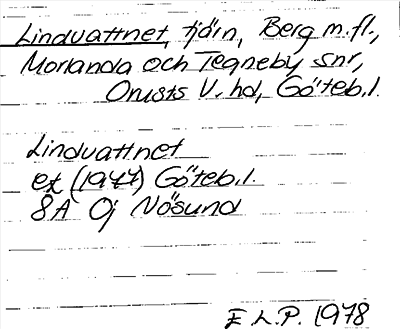 Lindvattnet, tjärn, Berg m.fl.,
Morlanda och Tegneby snr,
Orusts V. hd, Göteb.l.
Lindvattnet
ek (1977) Göteb.l.
8A 0j Nösund
E L.P. 1978